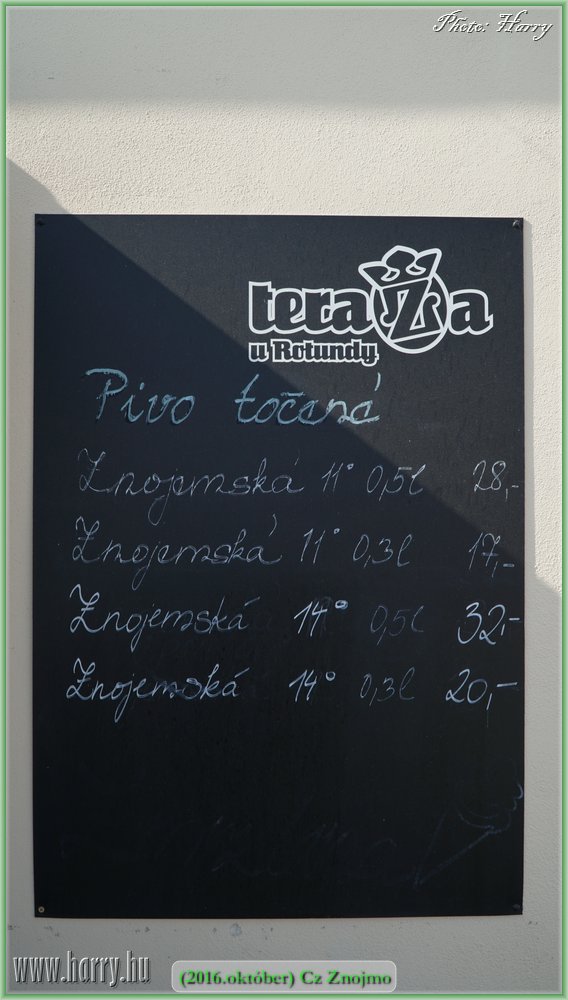 Photo: Harry
teraZa
u Rotundy
Pivo točené
Znojemská 11° 0,5l 28,-
Znojemská 11° 0,3l 17,-
Znojemská 14° 0,5l 32,-
Znojemská 14° 0,3l 20,-
www.harry.hu
(2016.október) Cz Znojmo